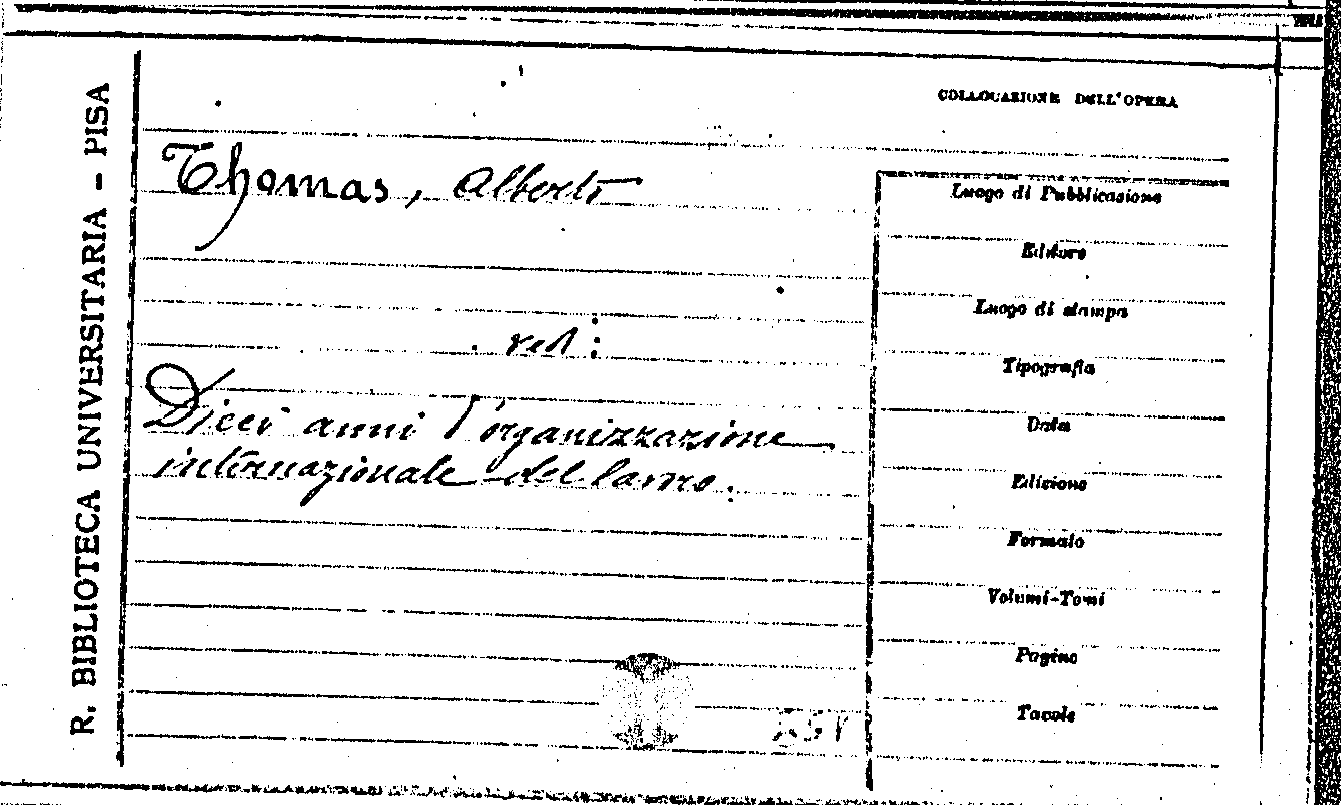 R. BIBLIOTECA UNIVERSITARIA - PISA
COLLOCAZIONE DELL'OPERA
Thomas, Alberto
ved:
Dieci anni d'organizzazione
internazionale del lavoro.
Luogo di Pubblicazione
Editore
Luogo di stampa
Tipografia
Data
Edizione
Formato
Volumi-Tomi
Pagine
Tavole